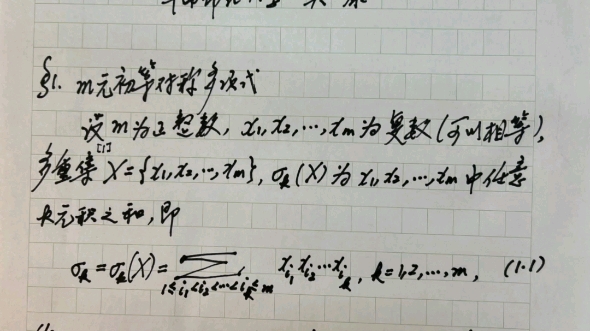 §1. m元初等对称多项式
设m为正整数, x₁, x₂, …, xₘ为复数(可以相等),
多重集[1] X={x₁, x₂, …, xₘ}, σₖ(X)为x₁, x₂, …, xₘ中任意
k元积之和, 即
σₖ=σₖ(X)=∑_{1≤i₁<i₂<…<iₖ≤m} x_{i₁}x_{i₂}…x_{iₖ}, k=1,2,…,m, (1.1)